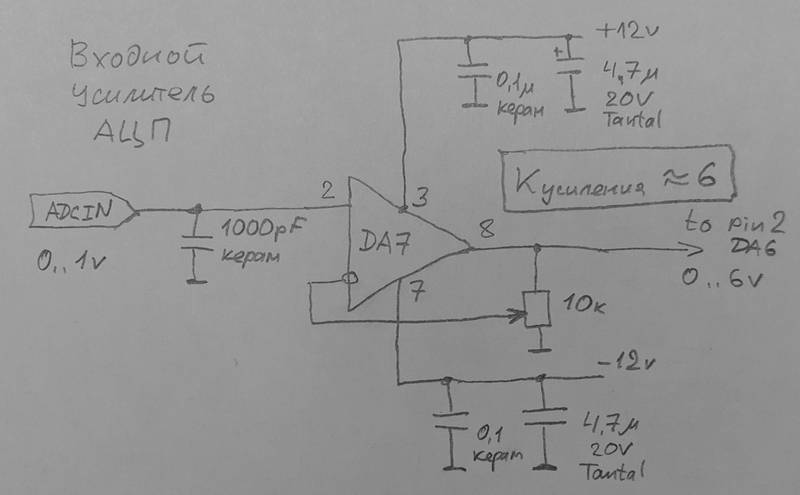 Входной
Усилитель
АЦП
+12v
0,1μ
керам
4,7μ
20V
Tantal
Кусиления ≈ 6
ADCIN
0..1v
1000pF
керам
2
3
DA7
8
7
to pin 2
DA6
0..6v
10к
-12v
0,1
керам
4,7μ
20V
Tantal